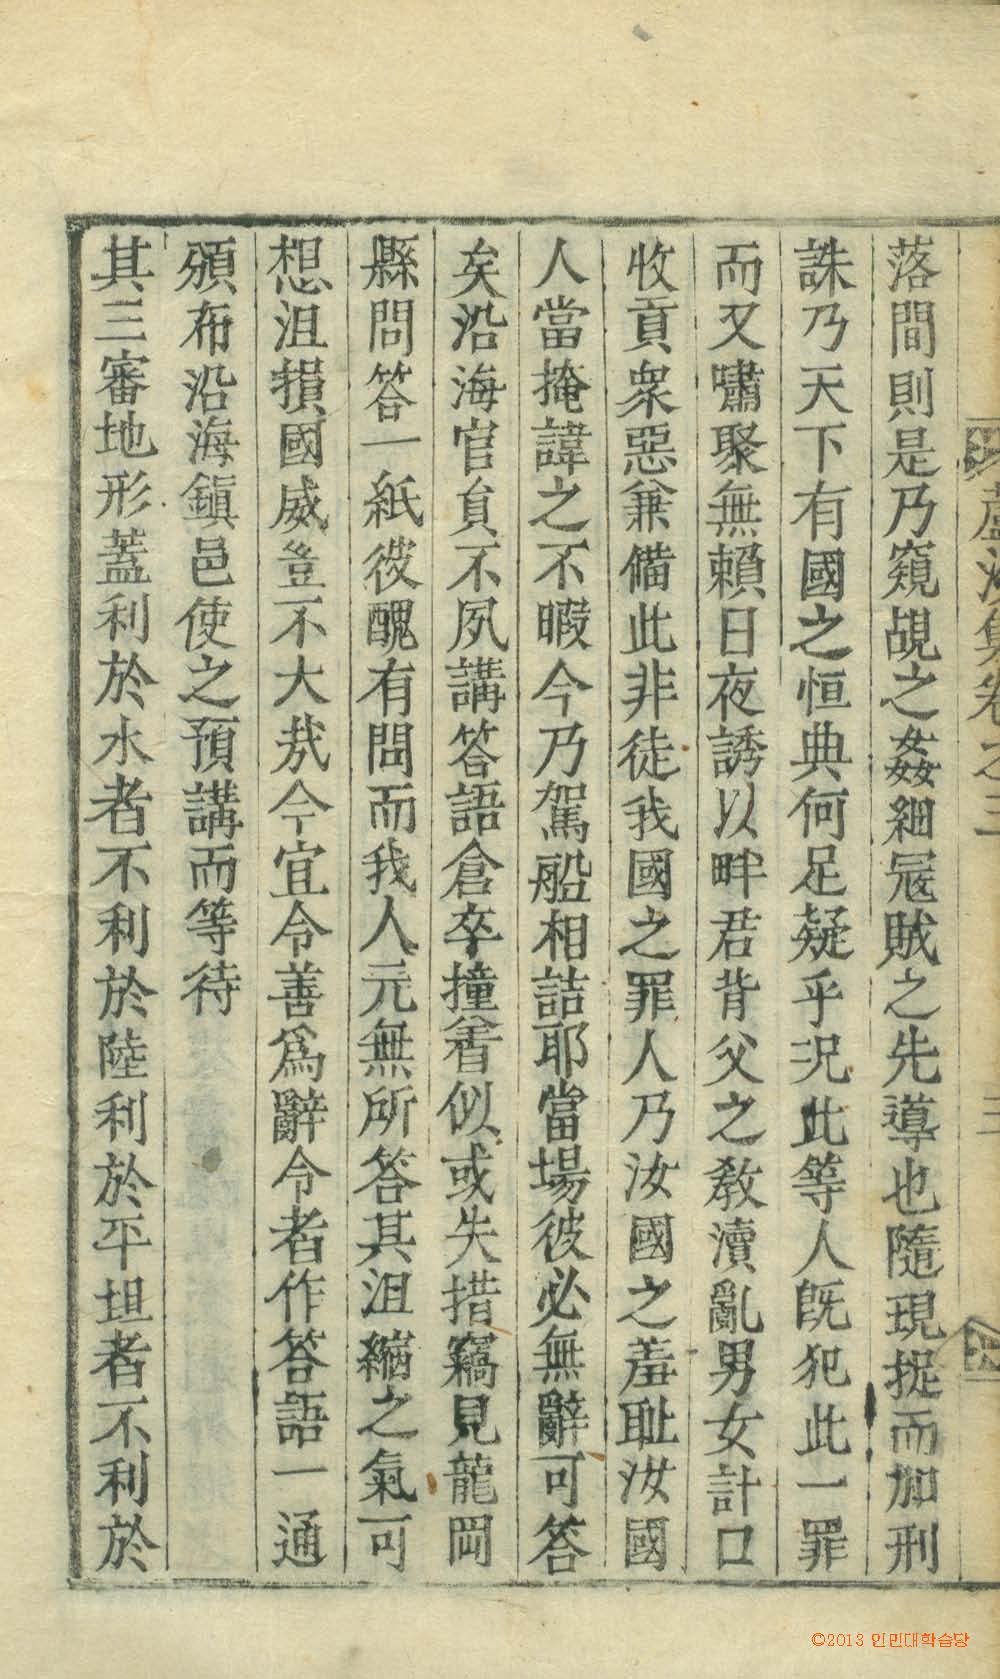 落間則是乃窺覘之姦細冦賊之先導也隨現捉而加刑
誅乃天下有國之恒典何足疑乎况此等人旣犯此一罪
而又嘯聚無賴日夜誘以畔君背父之敎瀆亂男女計口
收貢衆惡兼備此非徒我國之罪人乃汝國之羞耻汝國
人當掩諱之不暇今乃駕船相詰耶當場彼必無辭可答
矣沿海官負不夙講答語倉卒撞着似或失措竊見龍岡
縣問答一紙彼醜有問而我人元無所答其沮縮之氣可
想沮損國威豈不大㢤今宜令善爲辭令者作答語一通
頒布沿海鎭邑使之預講而等待
其三審地形蓋利於水者不利於陸利於平坦者不利於
集卷之三
三
©2013 인민대학습당